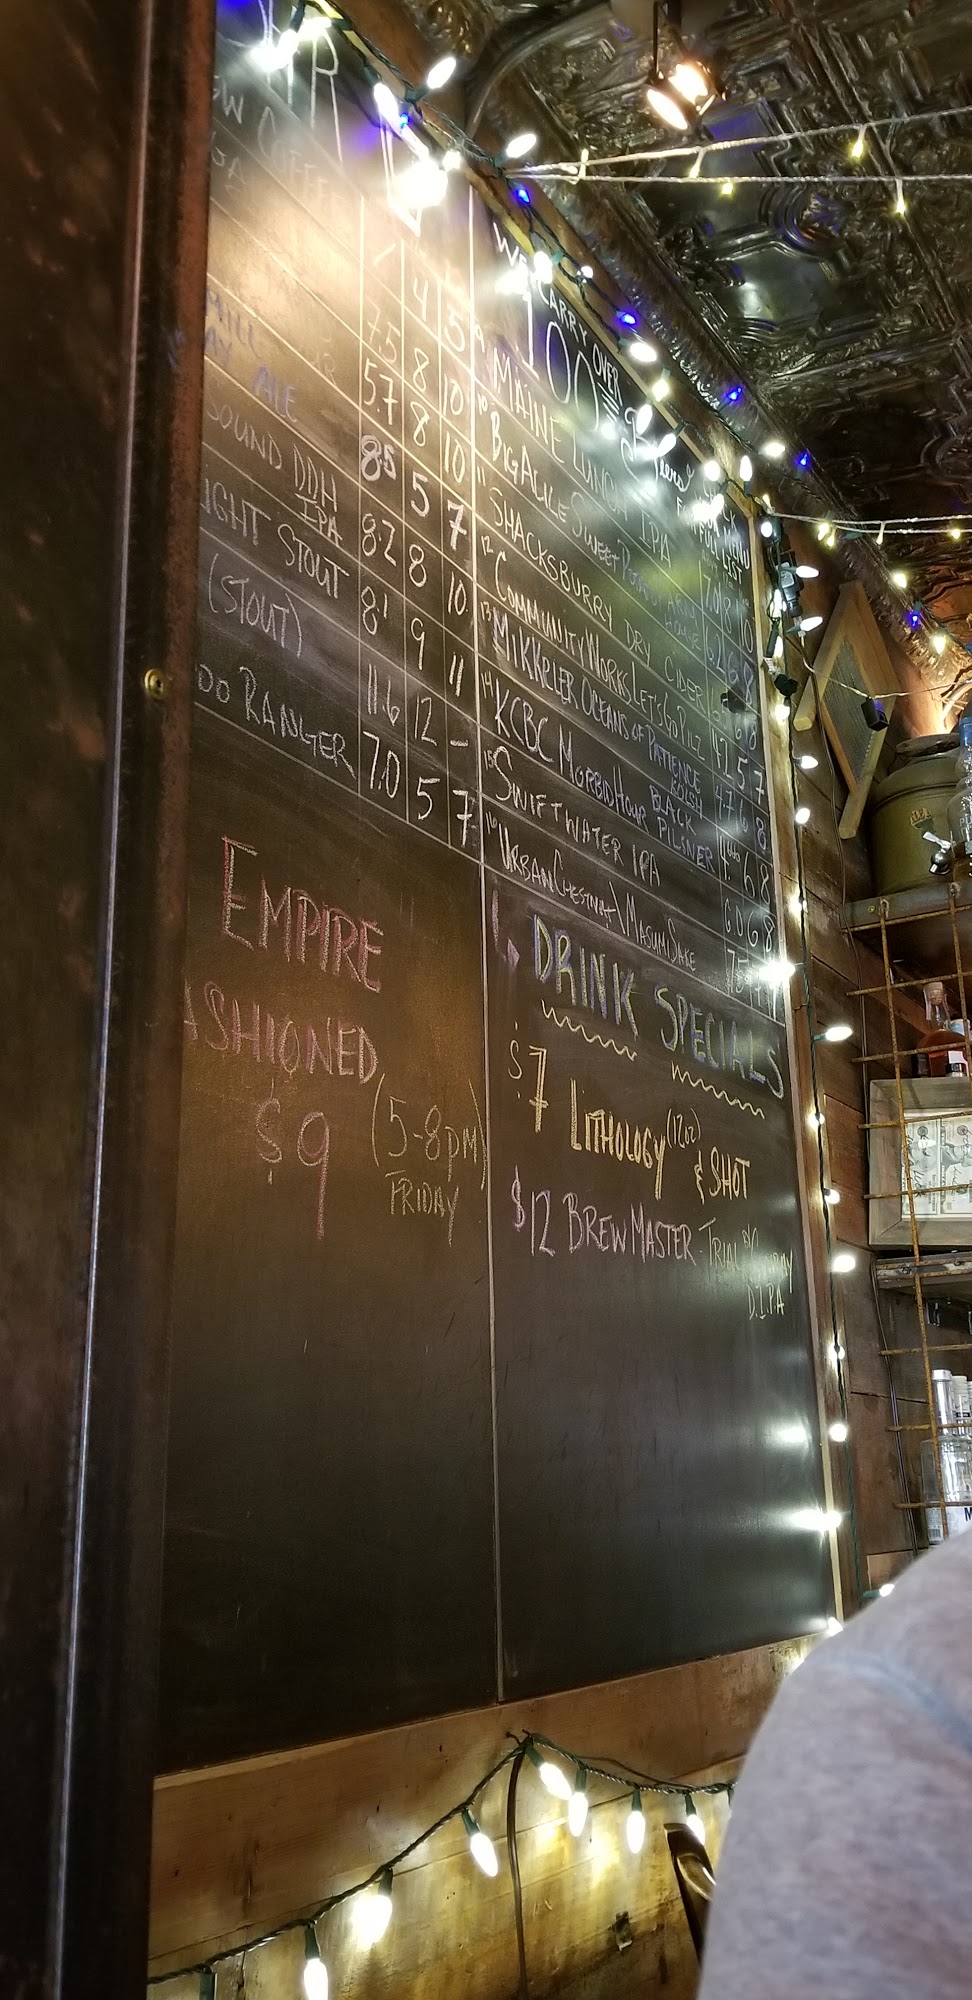 HR
W COFFEE
4 5
7.5 8 10
MILL
5.7 8 10
ALE
8.5 5 7
SOUND DDH IPA 8.2 8 10
IGHT STOUT 8.1 9 11
(STOUT) 11.6 12 -
OO RANGER 7.0 5 7
EMPIRE
ASHIONED
$9 (5-8PM)
FRIDAY
WE CARRY OVER
100 Beers
CHECK
MENU
FULL LIST
9. MAINE LUNCH IPA 7.0 8 10
10. BIG ALICE SWEET 6.2 6 8
11. SHACKSBURRY DRY CIDER 6 8
12. COMMUNITY WORKS LET'S GO PILZ 4.2 5 7
13. MIKKELER OCEANS OF PATIENCE 4.7 6 8
14. KCBC MORBID HOUR BLACK PILSNER 6 8
15. SWIFTWATER IPA 6.0 6 8
16. URBAN CHESTNUT\MASUMI SAKE
DRINK SPECIALS
$7 LITHOLOGY (12oz) & SHOT
$12 BREWMASTER - TRIAL
D.I.PA